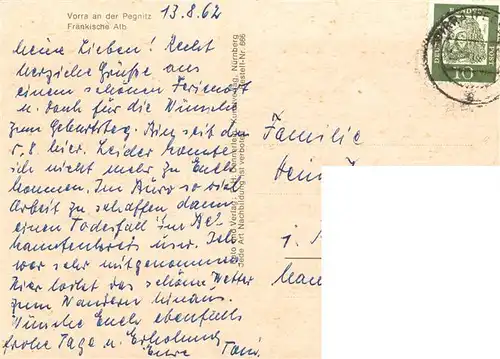 Vorra an der Pegnitz
Fränkische Alb
13.8.62
Meine Lieben! Recht
herzliche Grüße aus
einem schönen Ferienort
u. dank für die Wünsche
zum Geburtstag. Bin seit dem
5.8. hier. Leider konnte
ich nicht mehr zu Euch
kommen. Im Büro so viel
Arbeit zu schaffen, dann
einen Todesfall im Be-
kanntenkreis
war sehr mitgenommen.
Hier lockt das schöne Wetter
zum Wandern hinaus.
Wünsche Euch ebenfalls
frohe Tage u. Erholung
Eure Toni.
Foto und Verlag: Kunstverlag, Nürnberg
Jede Art Nachbildung ist verboten Bestell-Nr. 666
Familie
Hein
10